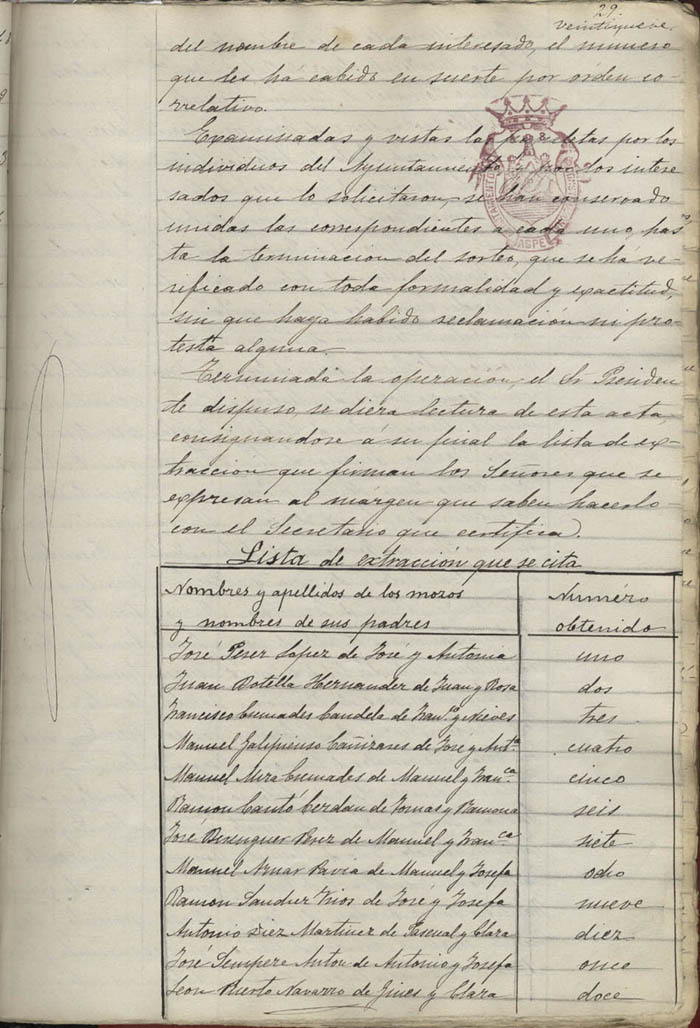 29.
veintinueve.
del nombre de cada interesado, el numero
que les há cabido en suerte por órden co-
rrelativo.
Examinadas y vistas las papeletas por los
individuos del Ayuntamiento y por los intere
sados que lo solicitaron, se han conservado
unidas las correspondientes a cada uno, has
ta la terminacion del sorteo, que se ha ve-
rificado con toda formalidad y exactitud,
sin que haya habido reclamación ni pro-
testa alguna.
Terminada la operacion, el Sr Presiden
te dispuso, se diera lectura de esta acta,
consignandose á su final la lista de ex-
traccion que firman los Señores que se
expresan al margen que saben hacerlo
con el Secretario que certifica.
Lista de extracción que se cita
Nombres y apellidos de los mozos
y nombres de sus padres
Numéro
obtenido
José Perez Lopez de José y Antonia uno
Juan Botella Hernandez de Juan y Rosa dos
Francisco Cremades Candela de Franco y Nieves tres
Manuel Galipienso Cañizares de José y Anta cuatro
Manuel Mira Cremades de Manuel y Franca cinco
Ramon Cantó Cerdán de Tomas y Ramona seis
José Berenguer Perez de Manuel y Franca siete
Manuel Aznar Pavia de Manuel y Josefa ocho
Ramon Rios de José y Josefa nueve
Antonio Diez Martinez de Pascual y Clara diez
José Sempere Anton de Antonio y Josefa once
Leon Puerto Navarro de Gines y Clara doce